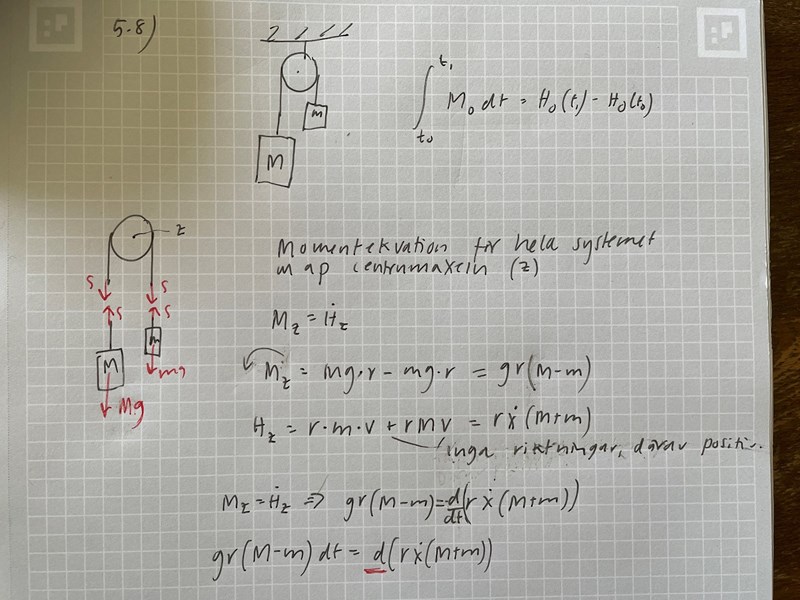 5.8)
m
M
∫_{t₀}^{t₁} M₀ dt = H₀(t₁) - H₀(t₀)
z
S S
S S
M m
mg
Mg
Momentekvation för hela systemet
map centrumaxeln (z)
M_z = Ḣ_z
M_z = mg·r - mg·r = gr(M-m)
H_z = r·m·v + rMv = rẋ(M+m)
inga riktningar, därav positiv.
M_z = Ḣ_z => gr(M-m) = d/dt(rẋ(M+m))
gr(M-m) dt = d(rẋ(M+m))